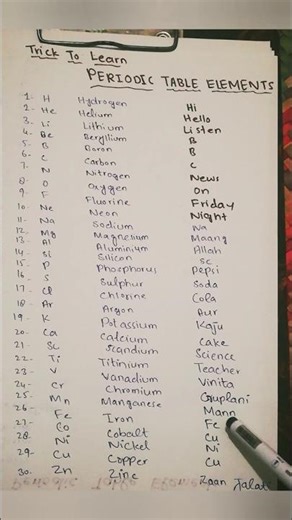 Trick To Learn
PERIODIC TABLE ELEMENTS
1- H Hydrogen Hi
2- He Helium Hello
3- Li Lithium Listen
4- Be Beryllium B
5- B Boron B
6- C Carbon C
7- N Nitrogen News
8- O Oxygen On
9- F Fluorine Friday
10- Ne Neon Night
11- Na Sodium Na
12- Mg Magnesium Maang
13- Al Aluminium Allah
14- Si Silicon Se
15- P Phosphorus Pepsi
16- S Sulphur Soda
17- Cl Chlorine Cola
18- Ar Argon Aur
19- K Potassium Kaju
20- Ca Calcium Cake
21- Sc Scandium Science
22- Ti Titinium Teacher
23- V Vanadium Vinita
24- Cr Chromium Gruplani
25- Mn Manganese Mann
26- Fe Iron Fe
27- Co Cobalt Cu
28- Ni Nickel Ni
29- Cu Copper Cu
30- Zn Zinc Zaan Jalati
Periodic Table Elements